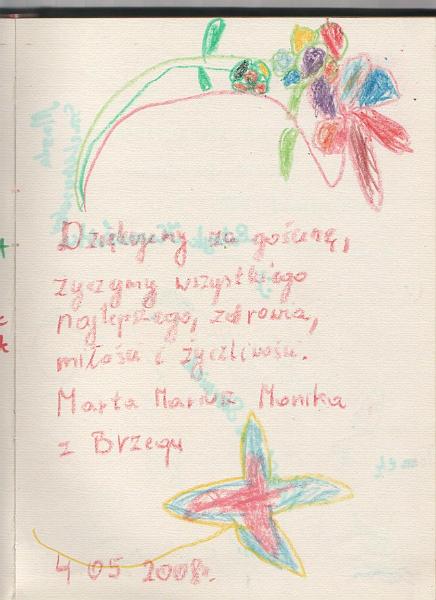 Dziękujemy za gościnę,
życzymy wszystkiego
najlepszego, zdrowia,
miłości i życzliwości.
Marta Mariusz Monika
z Brzegu
4 05 2008r.